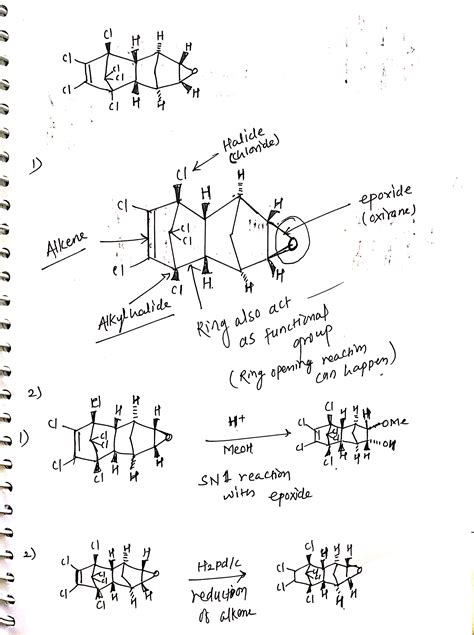 Cl Cl H H H
Cl Cl O
Cl Cl H H H H
1)
Halide
(Chloride)
Cl H H H
Cl
epoxide
(oxirane)
Alkene
Cl
Cl
O
Cl
Cl H H H
Alkyl halide
Ring also act
as functional
group
(Ring opening reaction
can happen)
2)
1)
Cl H H H
Cl Cl Cl O
Cl Cl H H H
H+
MeOH
SN1 reaction
with epoxide
Cl H H H
Cl OMe
Cl Cl H H H OH
2)
Cl H H H
Cl Cl Cl O
Cl Cl H H H
H2Pd/C
reduction
of alkene
Cl H H H
Cl Cl Cl O
Cl Cl H H H